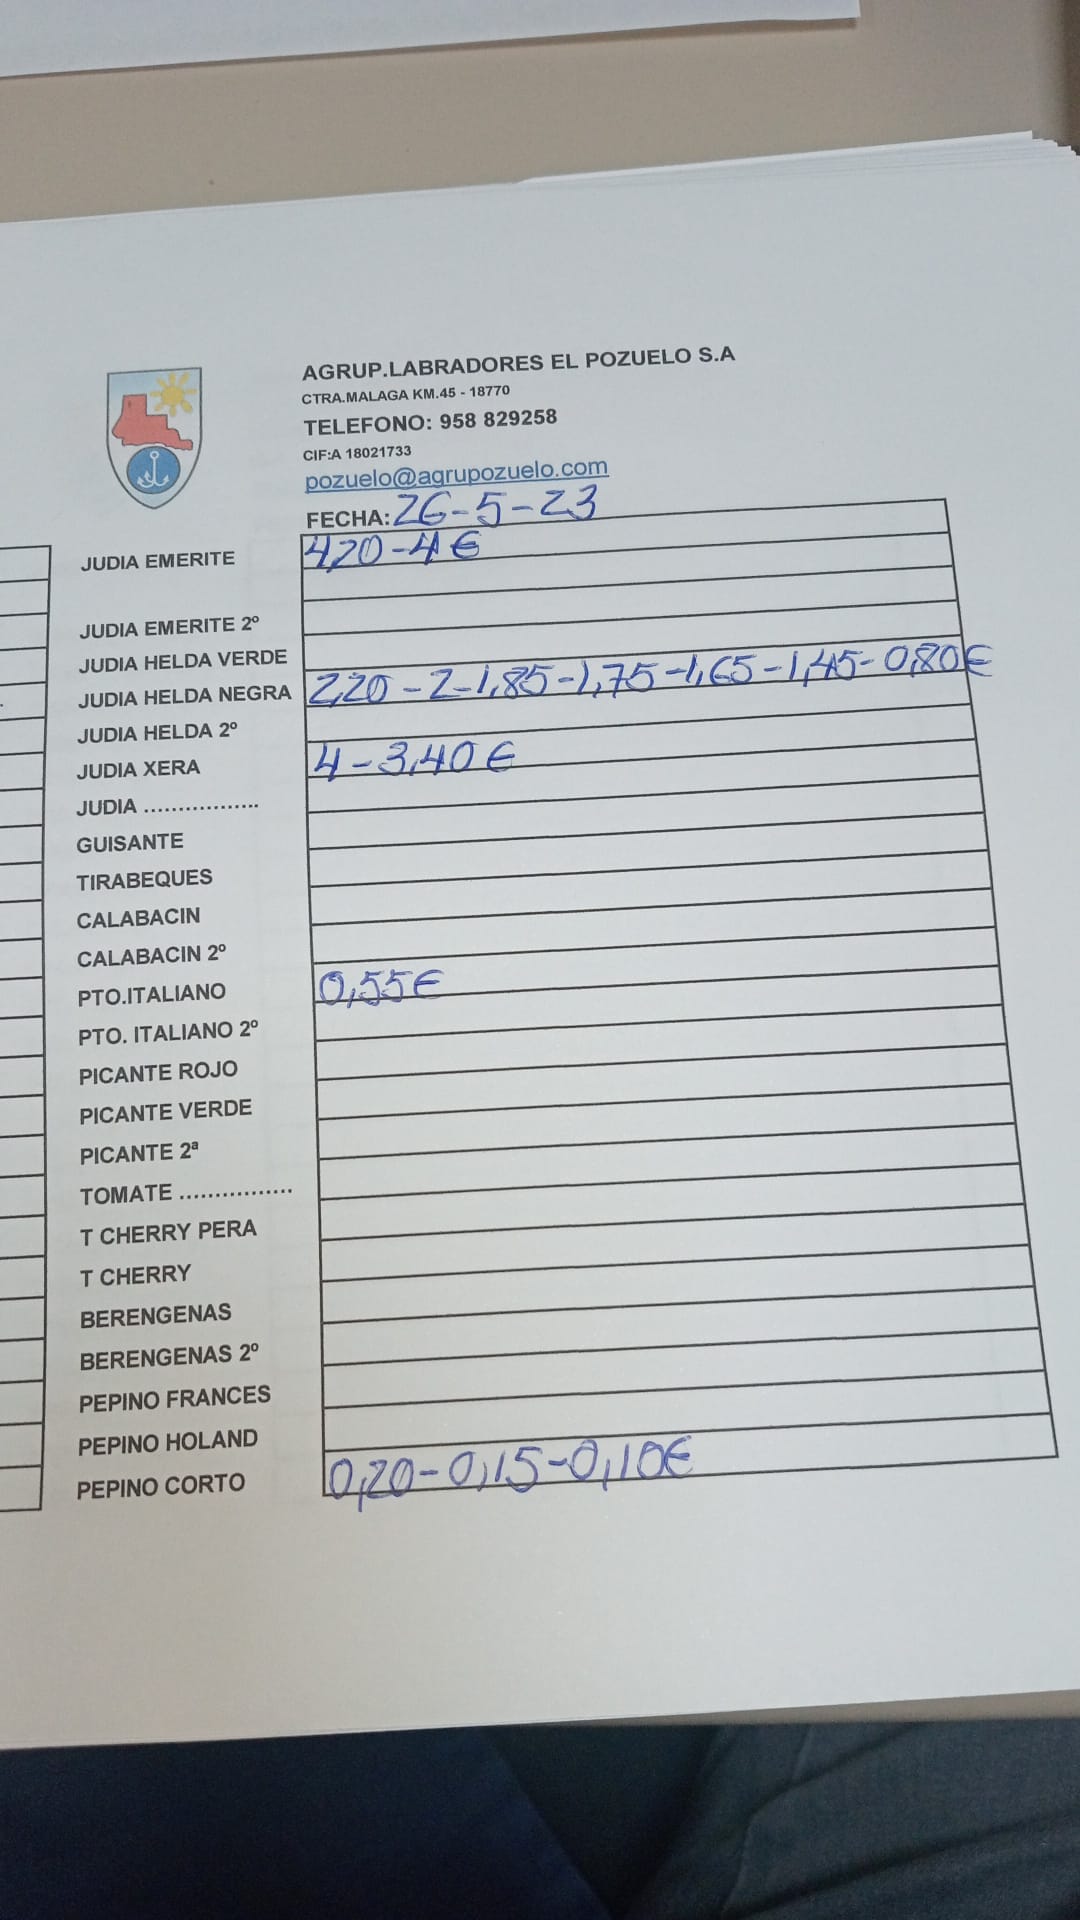 AGRUP.LABRADORES EL POZUELO S.A
CTRA.MALAGA KM.45 - 18770
TELEFONO: 958 829258
CIF:A 18021733
pozuelo@agrupozuelo.com
FECHA: 26-5-23
JUDIA EMERITE 4,20-4€
JUDIA EMERITE 2º
JUDIA HELDA VERDE
JUDIA HELDA NEGRA 2,20-2-1,85-1,75-1,65-1,45-0,80€
JUDIA HELDA 2º
JUDIA XERA 4-3,40€
JUDIA .................
GUISANTE
TIRABEQUES
CALABACIN
CALABACIN 2º
PTO.ITALIANO 0,55€
PTO. ITALIANO 2º
PICANTE ROJO
PICANTE VERDE
PICANTE 2ª
TOMATE ................
T CHERRY PERA
T CHERRY
BERENGENAS
BERENGENAS 2º
PEPINO FRANCES
PEPINO HOLAND
PEPINO CORTO 0,20-0,15-0,10€